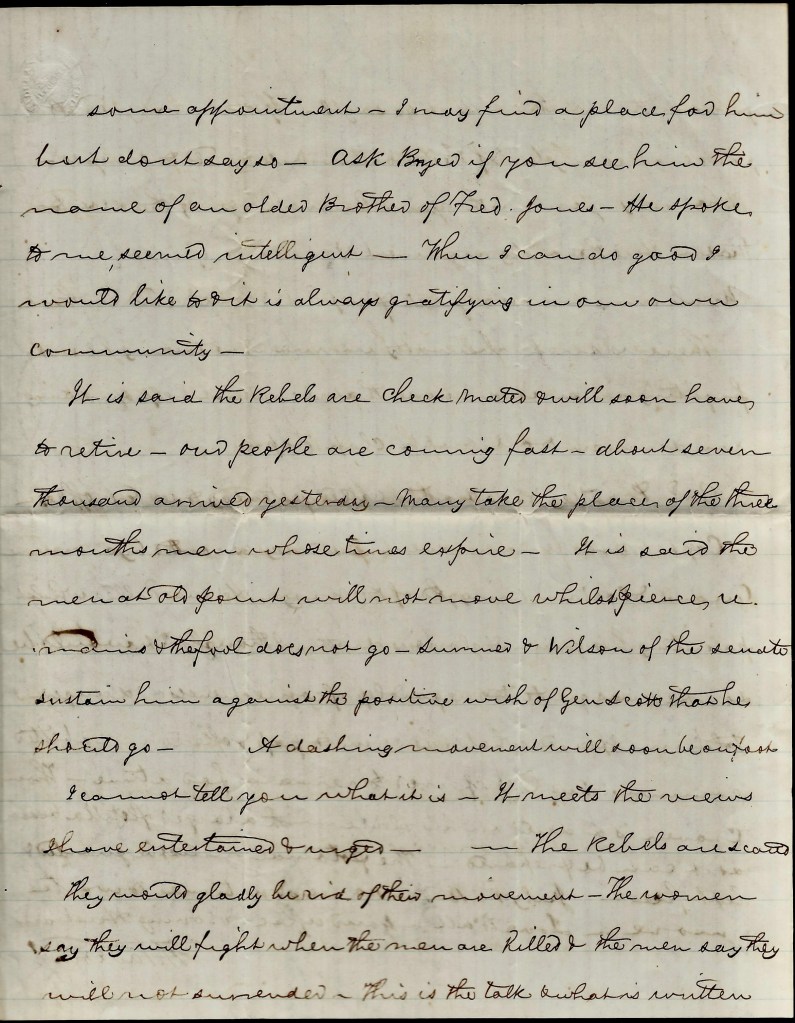 some appointment – I may find a place for him
but dont say so – Ask Byer if you see him the
name of an older Brother of Fred. Jones – He spoke
to me, seemed intelligent – When I can do good I
would like to it is always gratifying in our own
community –
It is said the Rebels are check mated & will soon have
to retire – our people are coming fast – about seven
thousand arrived yesterday – Many take the place of the three
months men whose times expire – It is said the
men at old point will not move whilst pierce re
mains & the fool does not go – Sumner & Wilson of the senate
sustain him against the positive wish of Gen Scott that he
should go – A dashing movement will soon be on foot
I cannot tell you what it is – It meets the views
I have entertained & urged – – The Rebels are scared
they would gladly be rid of their movement – The women
say they will fight when the men are Killed & the men say they
will not surrender – This is the talk & what is written